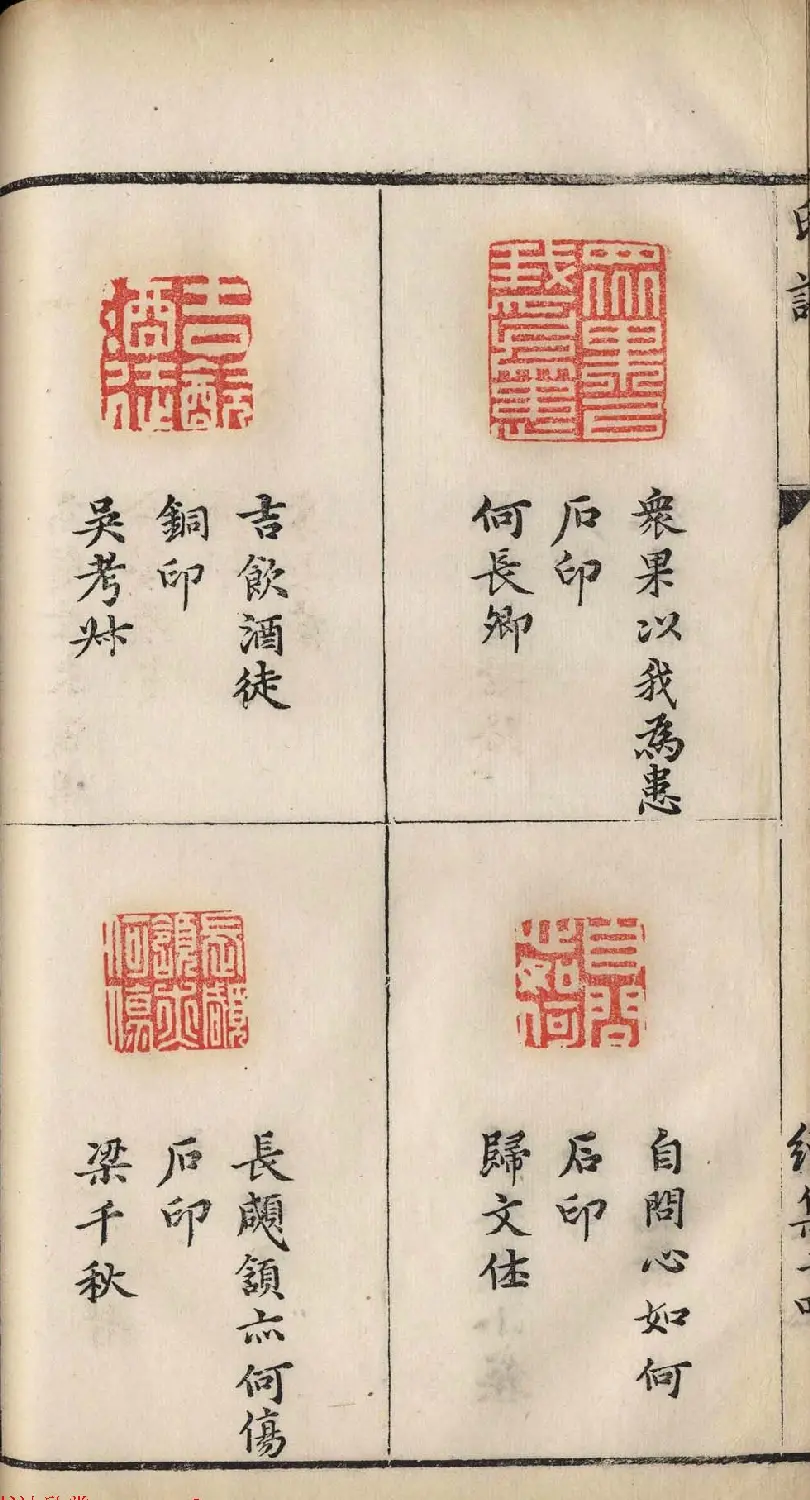 印
眾果以我為患
石印
何長卿
吉飲酒徒
銅印
吳考叔
自問心如何
石印
歸文休
長顑頷亦何傷
石印
梁千秋